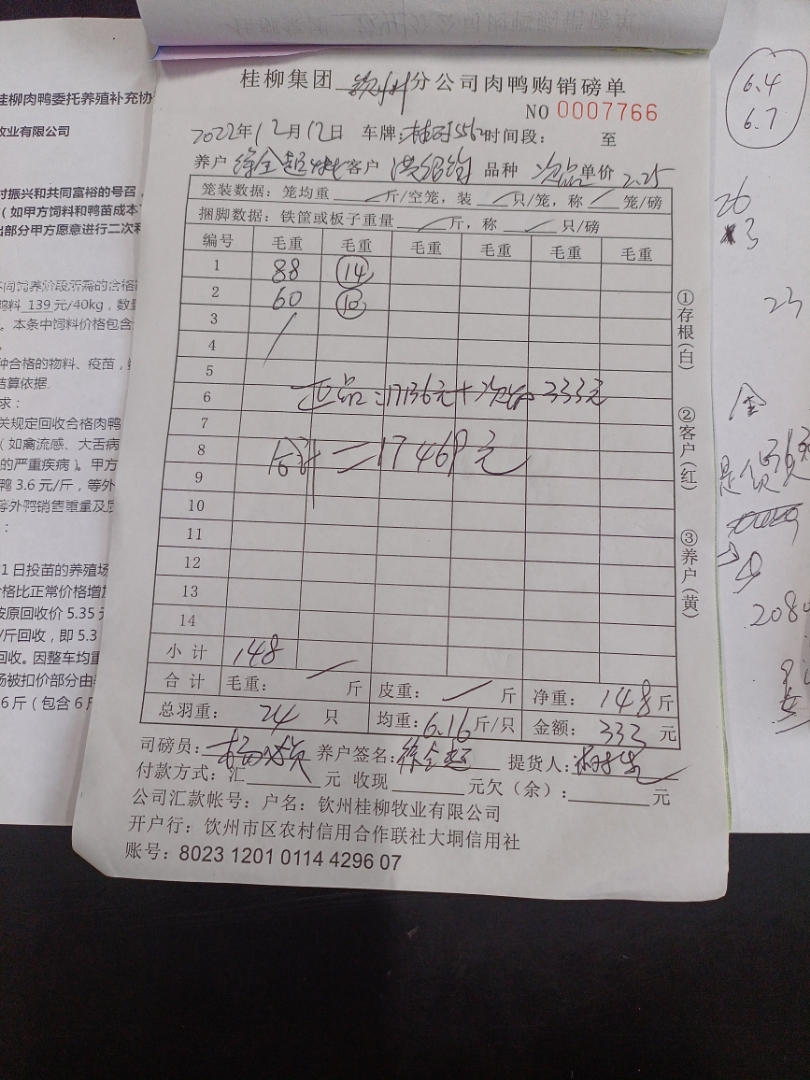 桂柳集团 钦州 分公司肉鸭购销磅单
NO 0007766
2022年12月12日 车牌: 时间段: 至
养户 徐全超 客户 品种 次品 单价 2.25
笼装数据：笼均重 斤/空笼，装 只/笼，称 笼/磅
捆脚数据：铁筐或板子重量 斤，称 只/磅
编号 毛重 毛重 毛重 毛重 毛重 毛重
1 88 14
2 60 10
3
4
5
6 正品：17136元+次品 333元
7
8 合计＝17469元
9
10
11
12
13
14
小计 148
合计 毛重： 斤 皮重： 斤 净重：148斤
总羽重：24 只 均重：6.16斤/只 金额：333 元
司磅员： 养户签名：徐全超 提货人：
付款方式：汇 元 收现 元欠（余）： 元
公司汇款帐号：户名：钦州桂柳牧业有限公司
开户行：钦州市区农村信用合作联社大垌信用社
账号：8023 1201 0114 4296 07
①存根(白)
②客户(红)
③养户(黄)
桂柳肉鸭委托养殖补充协
牧业有限公司
村振兴和共同富裕的号召，
（如甲方饲料和鸭苗成本
出部分甲方愿意进行二次和
不同饲养阶段所需的合格
鸭料 139元/40kg，数量
。本条中饲料价格包含
种合格的物料、疫苗，
结算依据.
求：
关规定回收合格肉鸭
（如禽流感、大舌病
的严重疾病）。甲方
鸭 3.6 元/斤，等外
等外鸭销售重量及
：
1 日投苗的养殖场
价格比正常价格增加
按原回收价 5.35 元
/斤回收，即 5.3
回收。因整车均重
场被扣价部分由
6 斤（包含 6 斤
6.4
6.7
26
3
23